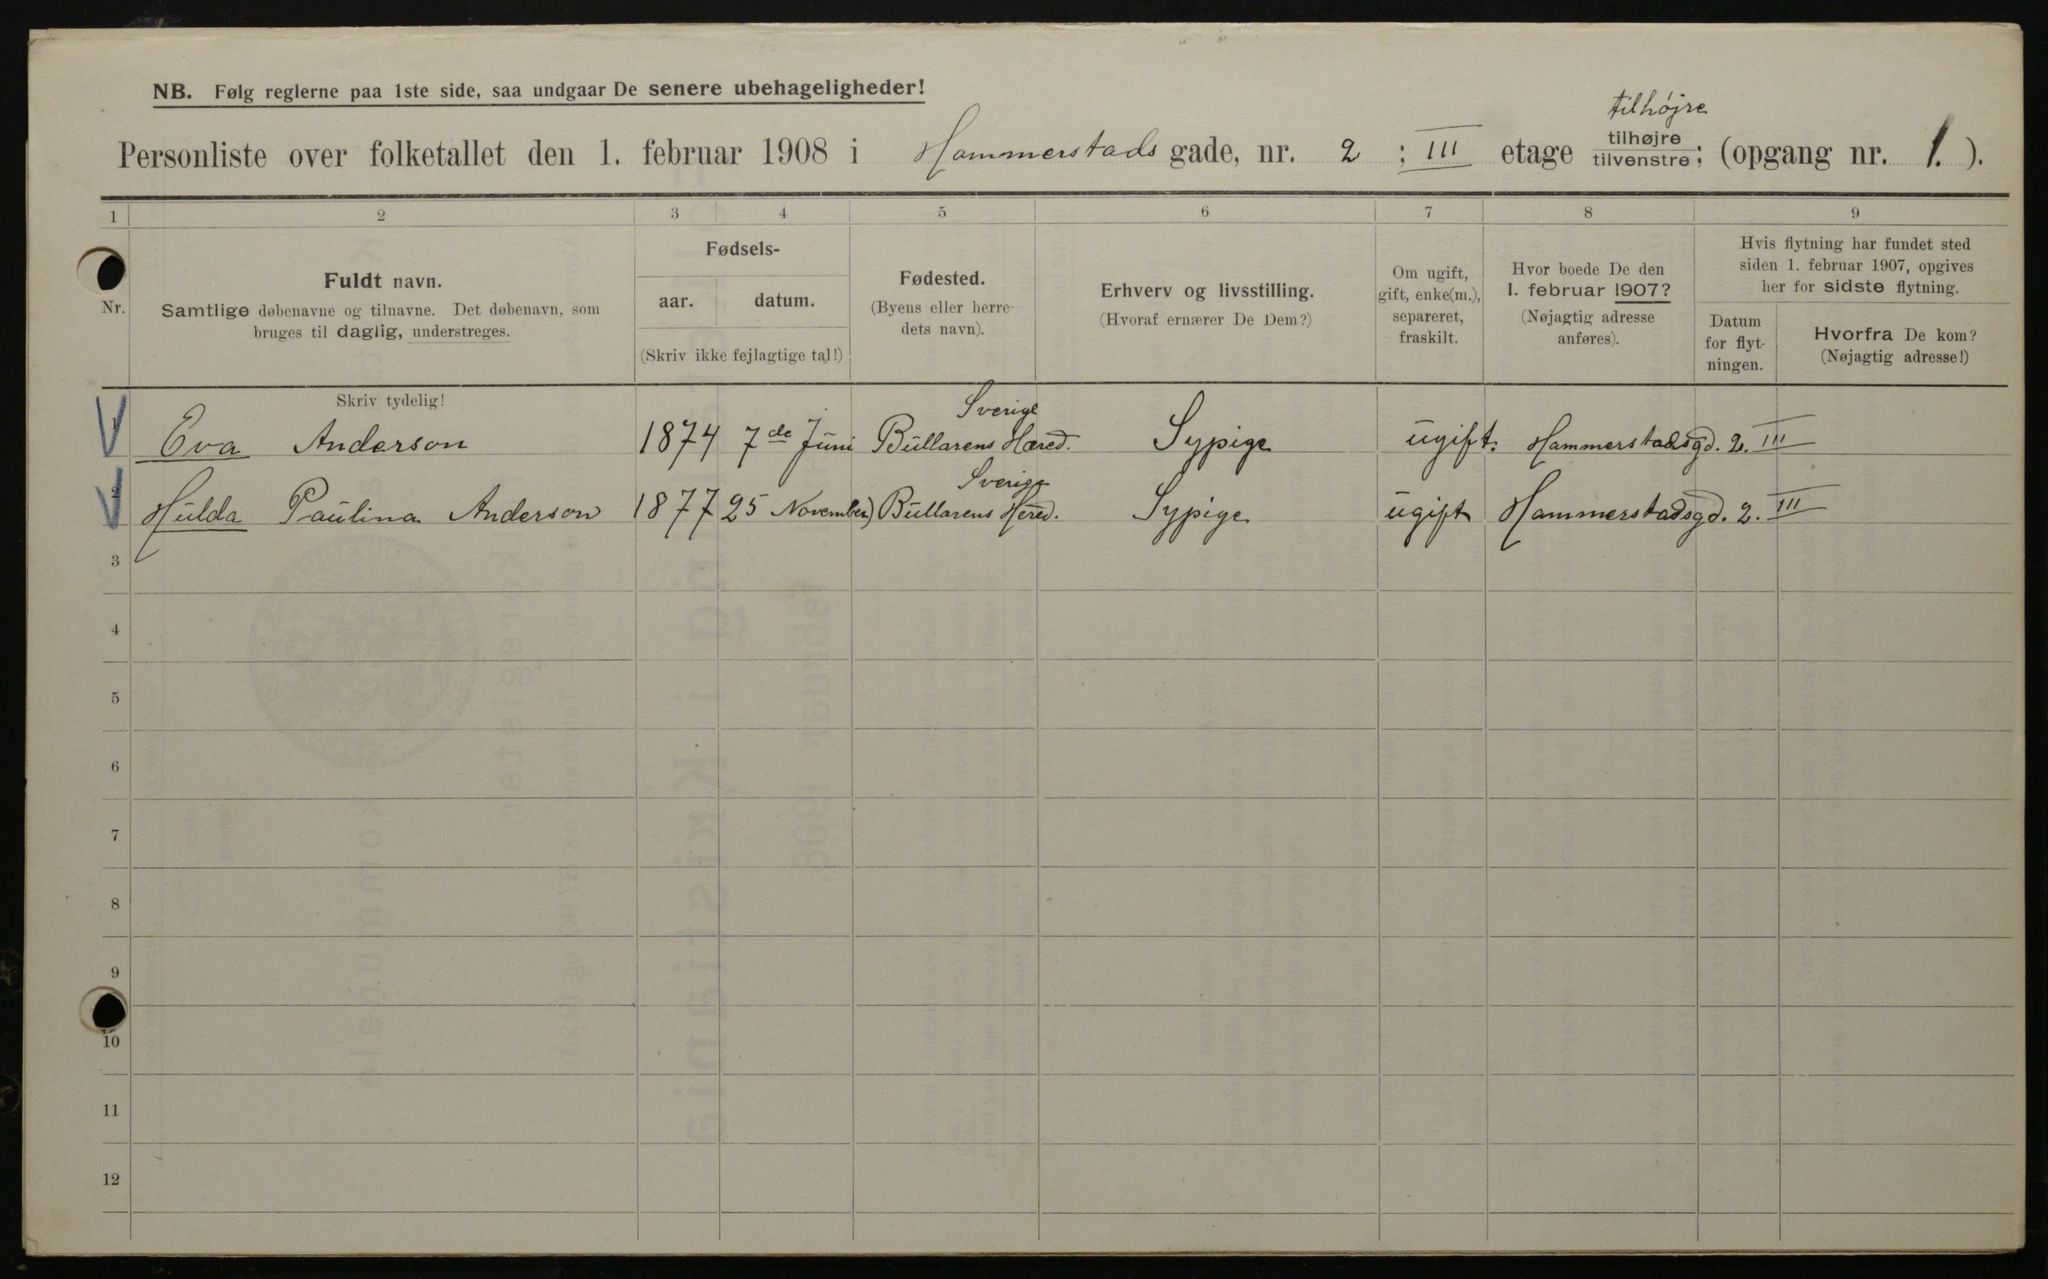 NB. Følg reglerne paa 1ste side, saa undgaar De senere ubehageligheder!
tilhøjre
Personliste over folketallet den 1. februar 1908 i Hammerstads gade, nr. 2 ; III etage tilhøjre tilvenstre; (opgang nr. 1. ).
1 2 3 4 5 6 7 8 9
Nr.
Fuldt navn.
Samtlige døbenavne og tilnavne. Det døbenavn, som
bruges til daglig, understreges.
Skriv tydelig!
Fødsels-
aar. datum.
(Skriv ikke fejlagtige tal!)
Fødested.
(Byens eller herre-
dets navn).
Erhverv og livsstilling.
(Hvoraf ernærer De Dem?)
Om ugift,
gift, enke(m.),
separeret,
fraskilt.
Hvor boede De den
1. februar 1907?
(Nøjagtig adresse
anføres).
Hvis flytning har fundet sted
siden 1. februar 1907, opgives
her for sidste flytning.
Datum
for flyt-
ningen.
Hvorfra De kom?
(Nøjagtig adresse!)
Sverige
1 Eva Anderson 1874 7de Juni Bullarens Hæred. Sypige ugift. Hammerstadsgd. 2. III
Sverige
2 Hulda Paulina Anderson 1877 25 November) Bullarens Hered. Sypige ugift Hammerstadsgd. 2. III
3
4
5
6
7
8
9
10
11
12